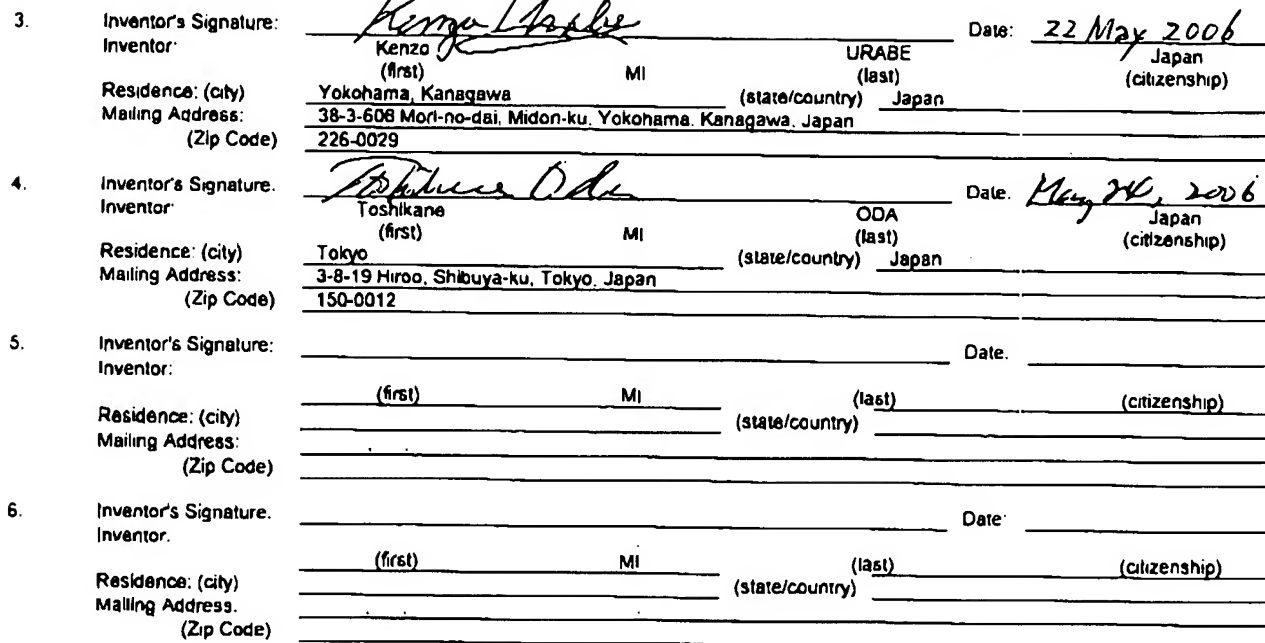 3. Inventor's Signature: Kenzo Urabe Date: 22 May 2006
Inventor: Kenzo URABE Japan
(first) MI (last) (citizenship)
Residence: (city) Yokohama, Kanagawa (state/country) Japan
Mailing Address: 38-3-608 Mori-no-dai, Midori-ku, Yokohama, Kanagawa, Japan
(Zip Code) 226-0029
4. Inventor's Signature. Toshikane Oda Date. May 24, 2006
Inventor: Toshikane ODA Japan
(first) MI (last) (citizenship)
Residence: (city) Tokyo (state/country) Japan
Mailing Address: 3-8-19 Hiroo, Shibuya-ku, Tokyo, Japan
(Zip Code) 150-0012
5. Inventor's Signature: Date.
Inventor:
(first) MI (last) (citizenship)
Residence: (city) (state/country)
Mailing Address:
(Zip Code)
6. Inventor's Signature. Date:
Inventor.
(first) MI (last) (citizenship)
Residence: (city) (state/country)
Mailing Address.
(Zip Code)